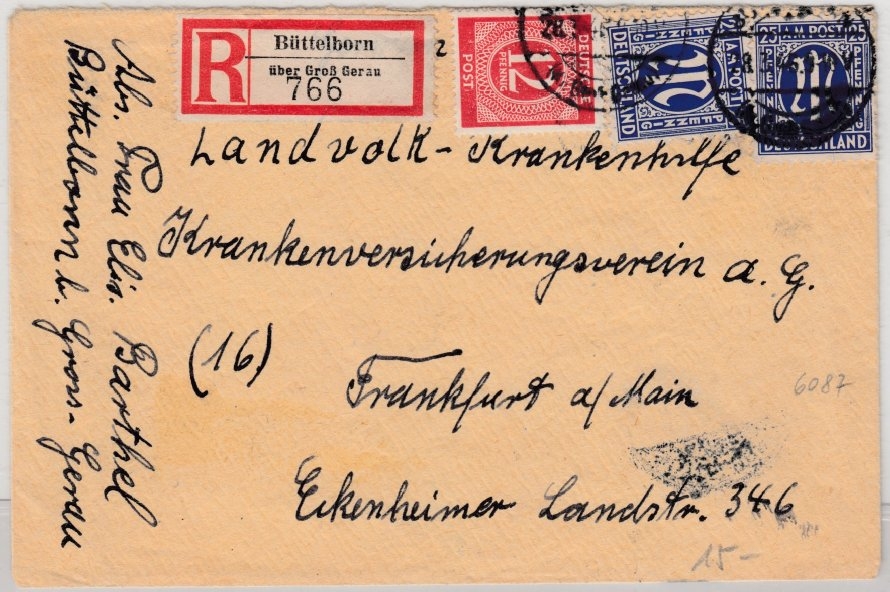 R
Büttelborn
über Groß Gerau
766
2
DEUTSCHE
POST
12
PFENNIG
DEUTSCHLAND
PFENNIG
AM POST
25 AM POST 25
PFENNIG
DEUTSCHLAND
Landvolk-Krankenhilfe
Krankenversicherungsverein a. G.
(16)
Frankfurt a/Main
Eckenheimer Landstr. 346
6087
15-
Abs. Frau Elis. Barthel
Büttelborn b. Gross-Gerau